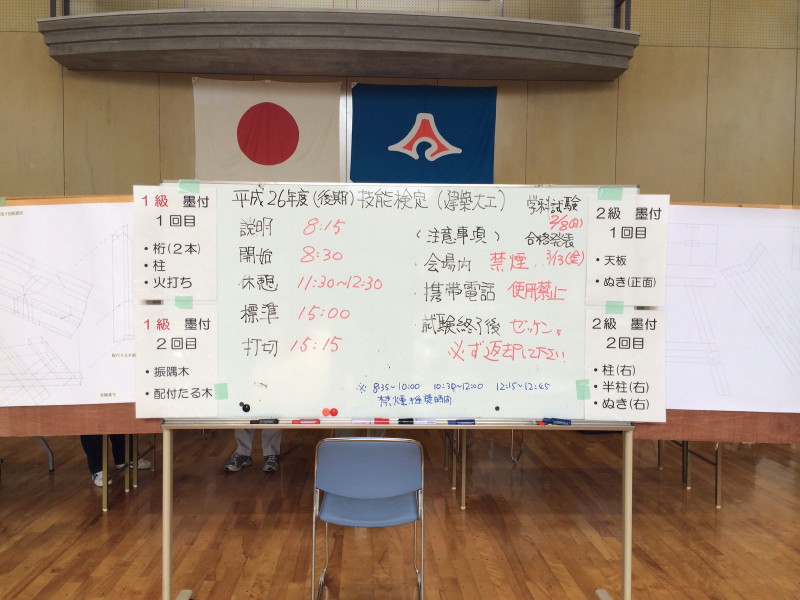 平成26年度(後期)技能検定(建築大工)
説明 8:15
開始 8:30
休憩 11:30~12:30
標準 15:00
打切 15:15
学科試験
2/8(日)
合格発表
3/13(金)
(注意事項)
会場内 禁煙
携帯電話 使用禁止
試験終了後 ゼッケン。
必ず返却して下さい
※ 8:35~10:00 10:30~12:00 12:15~12:45
禁煙推奨時間
1級 墨付
1回目
・桁(2本)
・柱
・火打ち
1級 墨付
2回目
・振隅木
・配付たる木
2級 墨付
1回目
・天板
・ぬき(正面)
2級 墨付
2回目
・柱(右)
・半柱(右)
・ぬき(右)